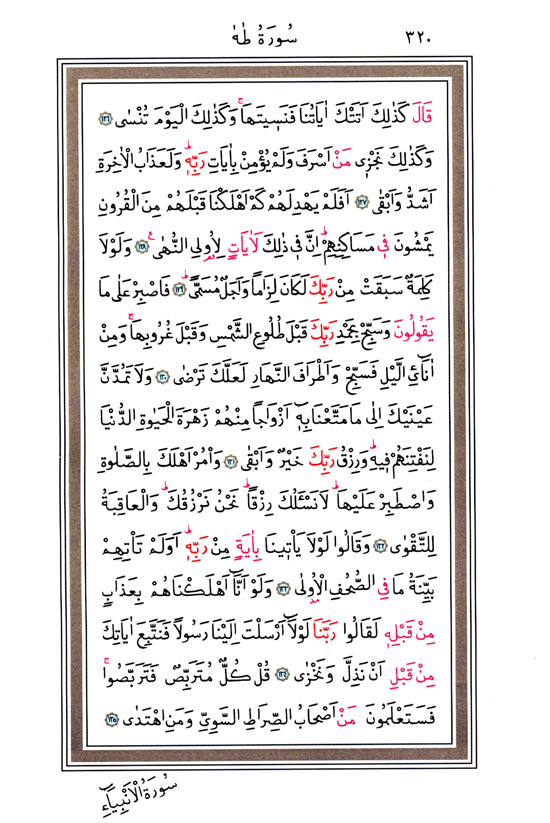 ٣٢٠ سُورَةُ طٰهٰ
قَالَ كَذٰلِكَ اَتَتْكَ اٰيَاتُنَا فَنَسٖيتَهَاۚ وَكَذٰلِكَ الْيَوْمَ تُنْسٰى ﴿١٢٦﴾
وَكَذٰلِكَ نَجْزٖى مَنْ اَسْرَفَ وَلَمْ يُؤْمِنْ بِاٰيَاتِ رَبِّهٖؕ وَلَعَذَابُ الْاٰخِرَةِ
اَشَدُّ وَاَبْقٰى ﴿١٢٧﴾ اَفَلَمْ يَهْدِ لَهُمْ كَمْ اَهْلَكْنَا قَبْلَهُمْ مِنَ الْقُرُونِ
يَمْشُونَ فٖى مَسَاكِنِهِمْؕ اِنَّ فٖى ذٰلِكَ لَاٰيَاتٍ لِاُولِى النُّهٰىࣖ ﴿١٢٨﴾ وَلَوْلَا
كَلِمَةٌ سَبَقَتْ مِنْ رَبِّكَ لَكَانَ لِزَاماً وَاَجَلٌ مُسَمًّىؕ ﴿١٢٩﴾ فَاصْبِرْ عَلٰى مَا
يَقُولُونَ وَسَبِّحْ بِحَمْدِ رَبِّكَ قَبْلَ طُلُوعِ الشَّمْسِ وَقَبْلَ غُرُوبِهَاۚ وَمِنْ
اٰنَٓائِ الَّيْلِ فَسَبِّحْ وَاَطْرَافَ النَّهَارِ لَعَلَّكَ تَرْضٰى ﴿١٣٠﴾ وَلَا تَمُدَّنَّ
عَيْنَيْكَ اِلٰى مَا مَتَّعْنَا بِهٖٓ اَزْوَاجاً مِنْهُمْ زَهْرَةَ الْحَيٰوةِ الدُّنْيَا
لِنَفْتِنَهُمْ فٖيهِؕ وَرِزْقُ رَبِّكَ خَيْرٌ وَاَبْقٰى ﴿١٣١﴾ وَأْمُرْ اَهْلَكَ بِالصَّلٰوةِ
وَاصْطَبِرْ عَلَيْهَاؕ لَا نَسْـَٔلُكَ رِزْقاًؕ نَحْنُ نَرْزُقُكَؕ وَالْعَاقِبَةُ
لِلتَّقْوٰى ﴿١٣٢﴾ وَقَالُوا لَوْلَا يَأْتٖينَا بِاٰيَةٍ مِنْ رَبِّهٖؕ اَوَلَمْ تَأْتِهِمْ
بَيِّنَةُ مَا فِى الصُّحُفِ الْاُولٰى ﴿١٣٣﴾ وَلَوْ اَنَّٓا اَهْلَكْنَاهُمْ بِعَذَابٍ
مِنْ قَبْلِهٖ لَقَالُوا رَبَّنَا لَوْلَٓا اَرْسَلْتَ اِلَيْنَا رَسُولاً فَنَتَّبِعَ اٰيَاتِكَ
مِنْ قَبْلِ اَنْ نَذِلَّ وَنَخْزٰى ﴿١٣٤﴾ قُلْ كُلٌّ مُتَرَبِّصٌ فَتَرَبَّصُواۚ
فَسَتَعْلَمُونَ مَنْ اَصْحَابُ الصِّرَاطِ السَّوِىِّ وَمَنِ اهْتَدٰى ﴿١٣٥﴾
سُورَةُ الْاَنْبِيَٓاءِ